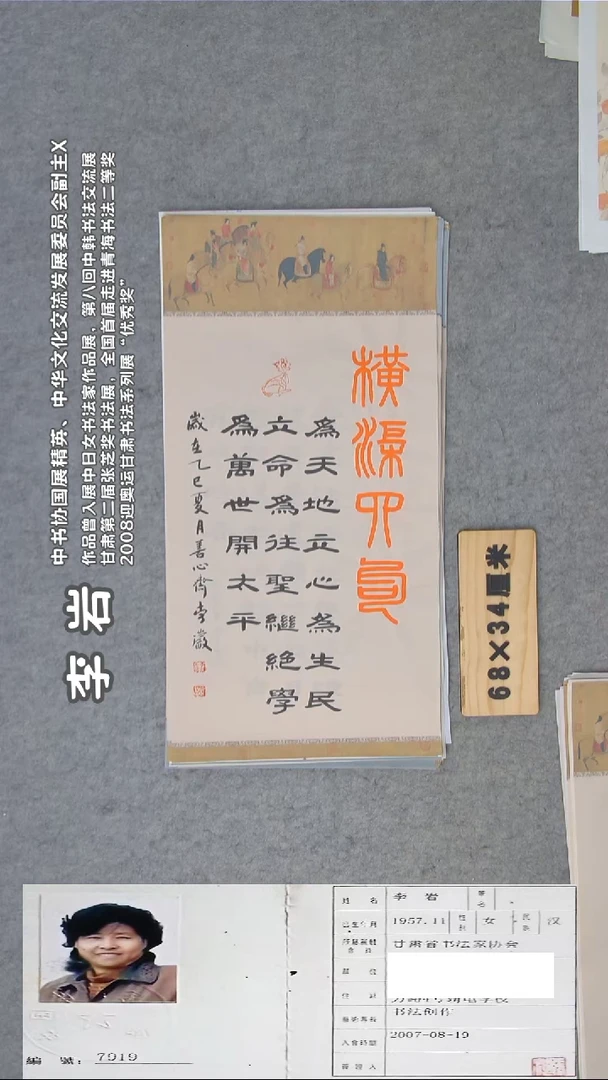 李岩
中书协国展精英、中华文化交流发展委员会副主X
作品曾入展中日女书法家作品展，第八回中韩书法交流展
甘肃第二届张芝奖书法展，全国首届走进青海书法二等奖
2008迎奥运甘肃书法系列展“优秀奖”
橫渠四句
為天地立心為生民
立命為往聖繼絕學
為萬世開太平
歲在乙巳夏月善心齋李巖
68×34厘米
姓名 李岩
出生年月 1957.11 性别 女 民族 汉
甘肃省书法家协会
书法创作
入會時間 2007-08-19
簽證人
編號: 7919